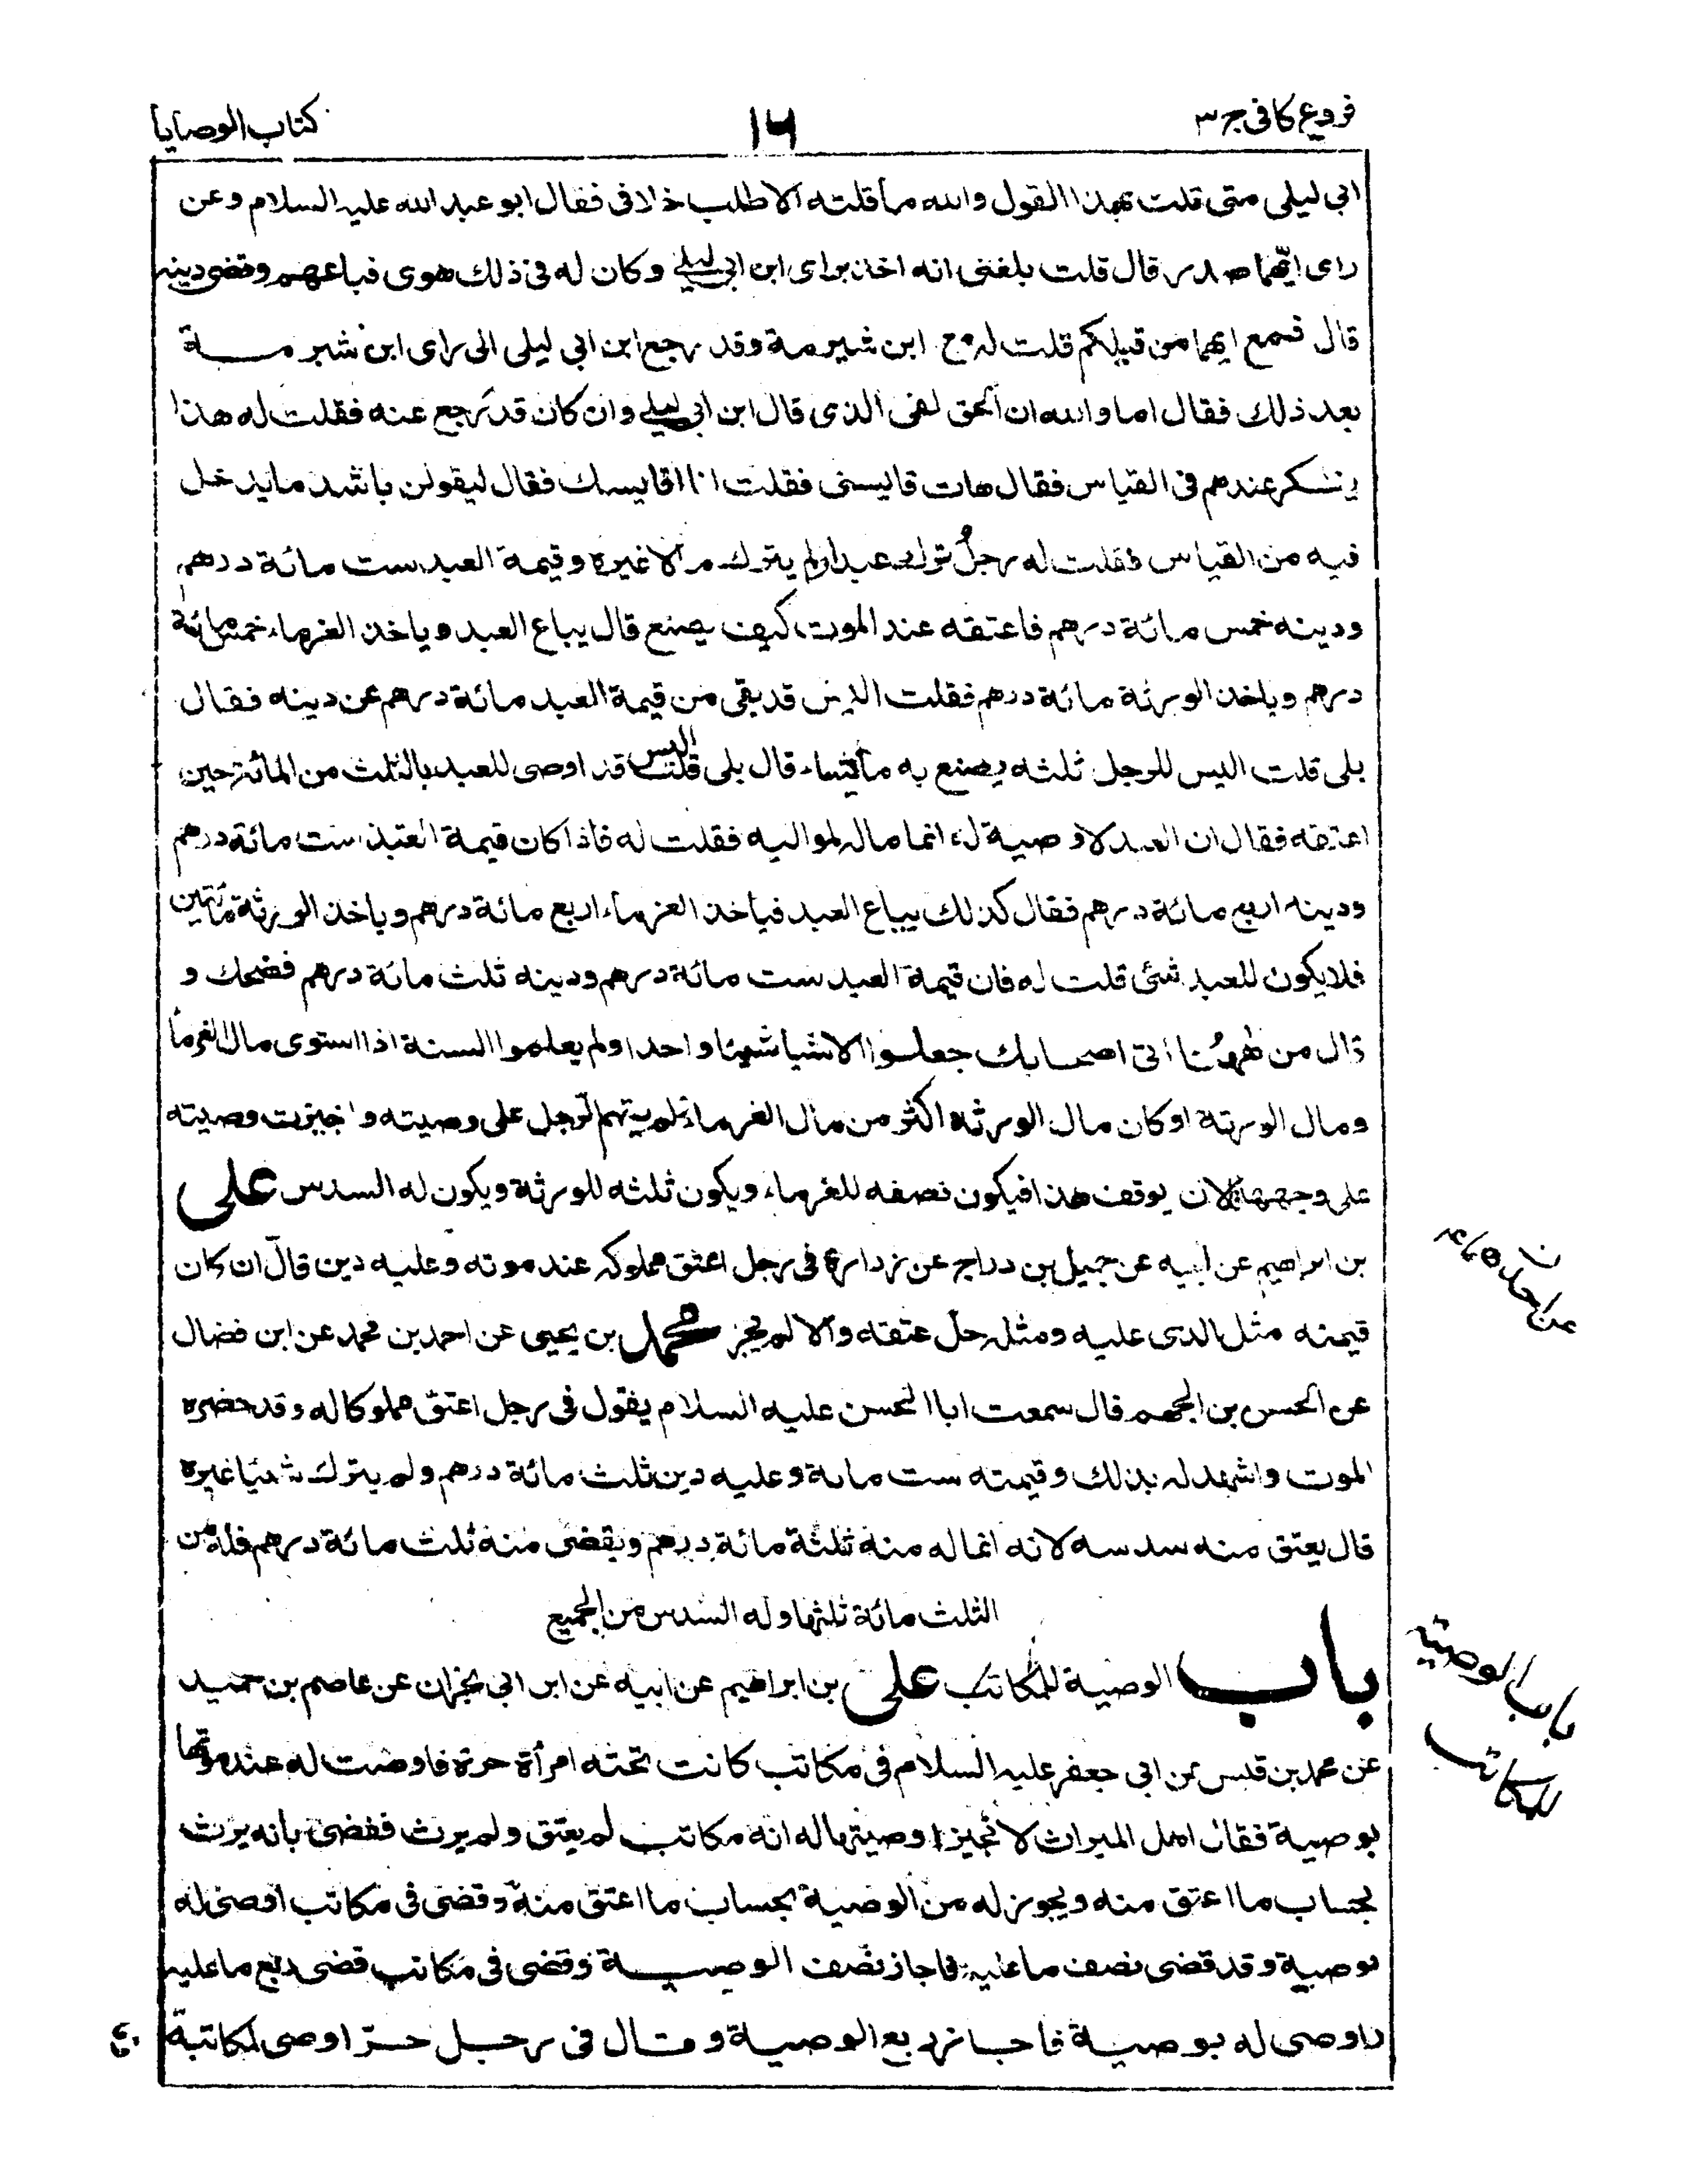 فروع كافى ج ٣
١٦
كتاب الوصايا
ابى ليلى متى قلت بهذا القول والله ما قلته الا طلب خلافى فقال ابو عبد الله عليه السلام وعن
راى ايهما صدر قال قلت بلغنى انه اخذ براى ابن ابى ليلى وكان له فى ذلك هوى فباعهم وقضى دينه
قال فمع ايهما من قبلكم قلت له مع ابن شبرمة وقد رجع ابن ابى ليلى الى راى ابن شبرمة
بعد ذلك فقال اما والله ان الحق لفى الذى قال ابن ابى ليلى وان كان قد رجع عنه فقلت له هذا
ينكسر عندهم فى القياس فقال هات قايسنى فقلت انا اقايسك فقال ليقولن باشد ما يدخل
فيه من القياس فقلت له رجلٌ ترك عبدا ولم يترك مالا غيره وقيمة العبد ست مائة درهم
ودينه خمس مائة درهم فاعتقه عند الموت كيف يصنع قال يباع العبد وياخذ الغرماء خمس مائة
درهم وياخذ الورثة مائة درهم فقلت اليس قد بقى من قيمة العبد مائة درهم عن دينه فقال
بلى قلت اليس للرجل ثلثه يصنع به ما يشاء قال بلى قلت اليس قد اوصى للعبد بالثلث من المائة حين
اعتقه فقال ان العبد لا وصية له انما ماله لمواليه فقلت له فاذا كان قيمة العبد ست مائة درهم
ودينه اربع مائة درهم فقال كذلك يباع العبد فياخذ الغرماء اربع مائة درهم وياخذ الورثة مأتين
فلا يكون للعبد شئ قلت له فان قيمة العبد ست مائة درهم ودينه ثلث مائة درهم فضحك و
قال من ههنا اتى اصحابك جعلوا الاشيا شيئا واحدا ولم يعلموا السنة اذا استوى مال الغرما
ومال الورثة او كان مال الورثة اكثر من مال الغرماء لم يتهم الرجل على وصيته واجيزت وصيته
على وجهها فالان يوقف هذا فيكون نصفه للغرماء ويكون ثلثه للورثة ويكون له السدس على
بن ابراهيم عن ابيه عن جميل بن دراج عن زرارة فى رجل اعتق مملوكه عند موته وعليه دين قال ان كان
قيمته مثل الذى عليه ومثله جاز عتقه والا لم يجز محمد بن يحيى عن احمد بن محمد عن ابن فضال
عن الحسن بن الجهم قال سمعت ابا الحسن عليه السلام يقول فى رجل اعتق مملوكا له وقد حضره
الموت واشهد له بذلك وقيمته ست مائة وعليه دين ثلث مائة درهم ولم يترك شيئا غيره
قال يعتق منه سدسه لانه انما له منه ثلثة مائة درهم ويقضى منه ثلث مائة درهم فله من
الثلث مائة ثلثها وله السدس من الجميع
باب الوصية للمكاتب على بن ابراهيم عن ابيه عن ابن ابى نجران عن عاصم بن حميد
عن محمد بن قيس عن ابى جعفر عليه السلام فى مكاتب كانت تحته امرأة حرة فاوصت له عند موتها
بوصية فقال اهل الميراث لا نجيز وصيتها له انه مكاتب لم يعتق ولم يرث فقضى بانه يرث
بحساب ما اعتق منه ويجوز له من الوصية بحساب ما اعتق منه وقضى فى مكاتب اوصى له
بوصية وقد قضى نصف ما عليه فاجاز نصف الوصية وقضى فى مكاتب قضى ربع ما عليه
فاوصى له بوصية فاجاز ربع الوصية وقال فى رجل حرّ اوصى لمكاتبة
باب الوصية
للمكاتب